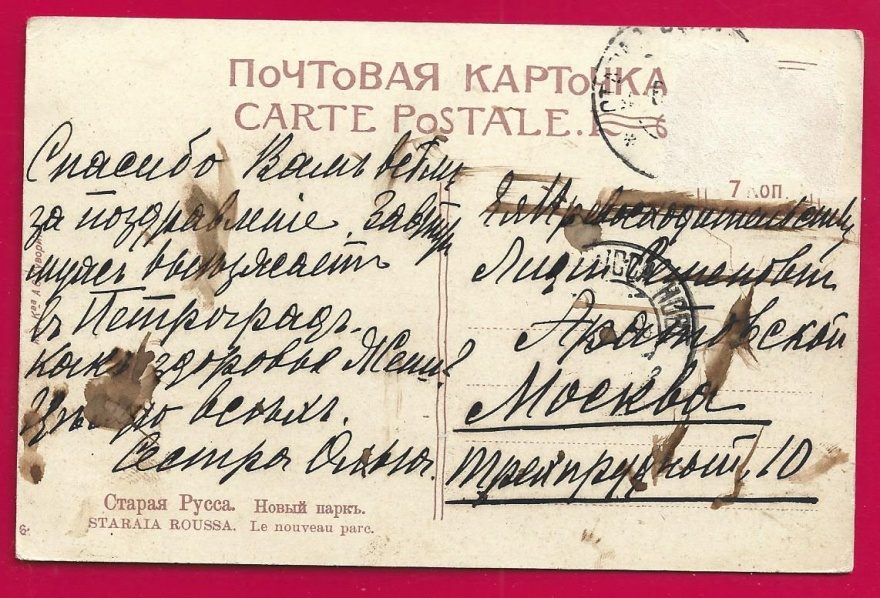 ПОЧТОВАЯ КАРТОЧКА
CARTE POSTALE.
6
7 коп.
Спасибо Вамъ всѣмъ
за поздравленіе. Завтра
мужъ выѣзжаетъ
въ Петроградъ.
Какъ здоровье Жени?
Цѣлую всѣхъ.
Сестра Ольга.
Ея Превосходительству
Лидіи Семеновнѣ
Москва
Трехпрудный, 10
Старая Русса. Новый паркъ.
STARAIA ROUSSA. Le nouveau parc.
6.